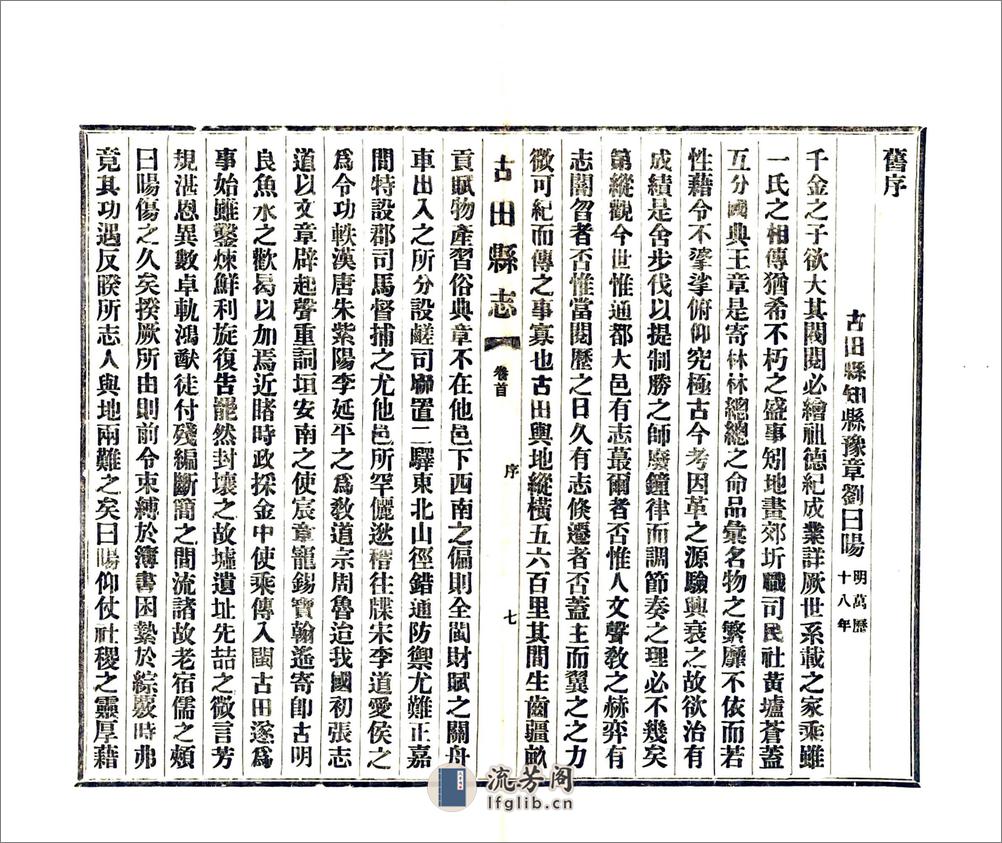 舊序
古田縣知縣豫章劉曰暘 明萬曆十八年
千金之子欲大其閥閱必繪祖德紀成業詳厥世系載之家乘雖
一氏之相傳猶希不朽之盛事矧地畫郊圻職司民社黃壚蒼蓋
互分國典王章是寄林林總總之命品彙名物之繁靡不依而若
性藉令不摹挲俯仰究極古今考因革之源驗興衰之故欲治有
成績是舍步伐以提制勝之師廢鐘律而調節奏之理必不幾矣
第縱觀今世惟通都大邑有志蕞爾者否惟人文聲敎之赫弈有
志闇曶者否惟當閱歷之日久有志倏遷者否蓋主而翼之之力
微可紀而傳之事寡也古田輿地縱橫五六百里其間生齒疆畝
古田縣志 卷首 序 七
貢賦物產習俗典章不在他邑下西南之偏則全閩財賦之關舟
車出入之所分設鹺司聯置二驛東北山徑錯通防禦尤難正嘉
間特設郡司馬督捕之尤他邑所罕儷逖稽往牒宋李道愛侯之
爲令功軼漢唐朱紫陽李延平之爲敎道宗周魯迨我國初張志
道以文章辟起聲重詞垣安南之使宸章寵錫寶翰遙寄卽古明
良魚水之歡曷以加焉近賭時政採金中使乘傳入閩古田遂爲
事始雖鑿煉鮮利旋復吿罷然封壤之故墟遺址先喆之微言芳
規湛恩異數卓軌鴻猷徒付殘編斷簡之間流諸故老宿儒之頰
曰暘傷之久矣揆厥所由則前令束縛於簿書困縶於綜覈時弗
竟其功遇反睽所志人與地兩難之矣曰暘仰仗社稷之靈厚藉
流芳阁
lfglib.cn